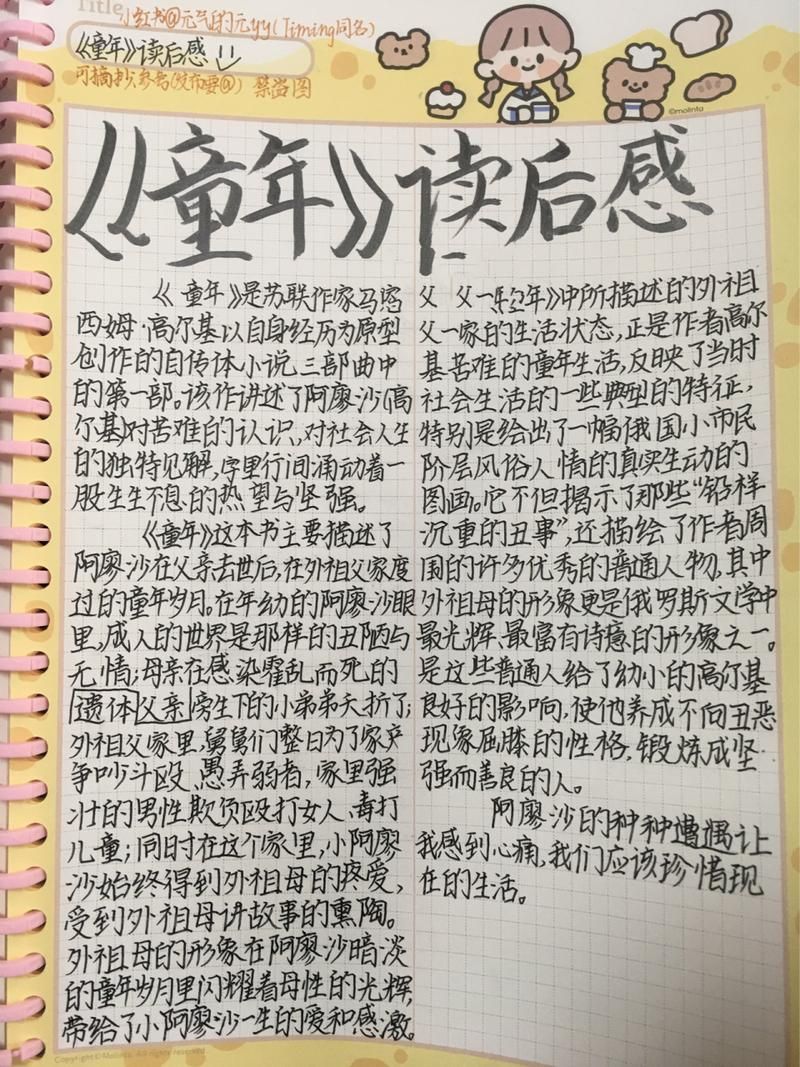 Title
小红书@元气的元yy(Timing同名)
《童年》读后感
可摘抄、参考(发布要@) 禁盗图
©molinta
《童年》读后感
《童年》是苏联作家马克
西姆·高尔基以自身经历为原型
创作的自传体小说三部曲中
的第一部。该作讲述了阿廖沙(高
尔基)对苦难的认识,对社会人生
的独特见解,字里行间涌动着一
股生生不息的热望与坚强。
《童年》这本书主要描述了
阿廖沙在父亲去世后,在外祖父家度
过的童年岁月。在年幼的阿廖沙眼
里,成人的世界是那样的丑陋与
无情;母亲在感染霍乱而死的
遗体父亲旁生下的小弟弟夭折了;
外祖父家里,舅舅们整日为了家产
争吵斗殴、愚弄弱者,家里强
壮的男性欺负殴打女人、毒打
儿童;同时在这个家里,小阿廖
沙始终得到外祖母的疼爱,
受到外祖母讲故事的熏陶。
外祖母的形象在阿廖沙暗淡
的童年岁月里闪耀着母性的光辉,
带给了小阿廖沙一生的爱和感激。
父 父一《童年》中所描述的外祖
父一家的生活状态,正是作者高尔
基苦难的童年生活,反映了当时
社会生活的一些典型的特征,
特别是绘出了一幅俄国小市民
阶层风俗人情的真实生动的
图画。它不但揭示了那些“铅样
沉重的丑事”,还描绘了作者周
围的许多优秀的普通人物,其中
外祖母的形象更是俄罗斯文学中
最光辉、最富有诗意的形象之一。
是这些普通人给了幼小的高尔基
良好的影响,使他养成不向丑恶
现象屈膝的性格,锻炼成坚
强而善良的人。
阿廖沙的种种遭遇让
我感到心痛,我们应该珍惜现
在的生活。
Copyright © Molinta. All rights reserved.